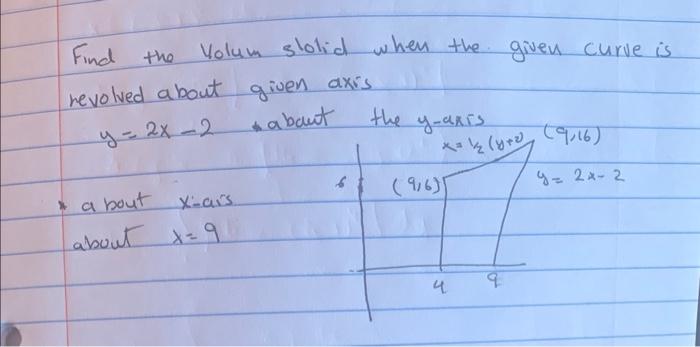 Find the Volum slolid when the given curve is
revolved about given axis
y = 2x - 2 * about the y-axis
x = 1/2 (y+2) (9,16)
6 (4,6) y = 2x - 2
* about x-ais
about x = 9
4 9